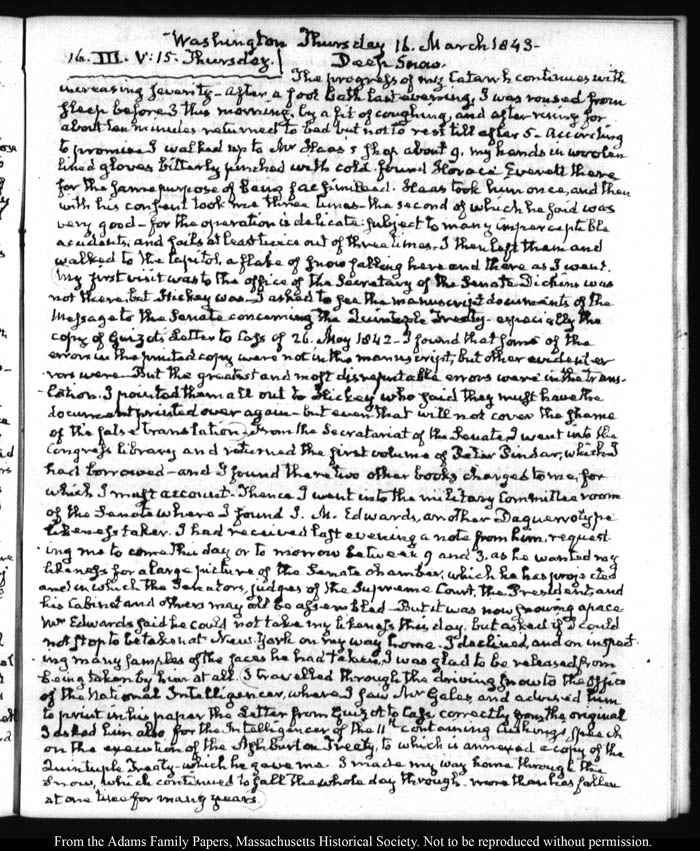 Washington Thursday 16. March 1843-
16. III. V:15. Thursday. Deep Snow.
The progress of my Catarrh continues with
increasing severity- After a foot bath last evening, I was roused from
sleep before 3 this morning, by a fit of coughing, and after rising for
about ten minutes returned to bed but not to rest till after 5- According
to promise I walked up to Mr Haas's shop about 9, my hands in woolen
lined gloves bitterly pinched with cold. found Horace Everett there
for the same purpose of being facsimiled. Haas took him once, and then
with his consent took me three times- the second of which he said was
very good- for the operation is delicate: subject to many imperceptible
accidents, and fails at least twice out of three times- I then left them and
walked to the Capitol, a flake of snow falling here and there as I went.
My first visit was to the office of the Secretary of the Senate Dickins was
not there, but Hickey was- I asked to see the manuscript documents of the
Message to the Senate concerning the Quintuple Treaty- especially the
copy of Guizot's Letter to Cass of 26. May 1842- I found that some of the
errors in the printed copy were not in the manuscript, but other evident er
rors were- But the greatest and most disreputable errors were in the trans-
-lation. I pointed them all out to Hickey who said they must have the
document printed over again- but even that will not cover the shame
of the false translation- From the Secretariat of the Senate, I went into the
Congress library and returned the first volume of Peter Pindar, which I
had borrowed- and I found there two other books charged to me, for
which I must account- Thence I went into the military Committee room
of the Senate where I found J. M. Edwards, another Daguerrotype
likeness taker. I had received last evening a note from him, request
-ing me to come this day or to morrow between 9 and 3. as he wanted my
likeness for a large picture of the Senate chamber, which he has projected
and in which the Senators, judges of the Supreme Court, the President, and
his Cabinet and others may all be assembled- But it was now snowing apace
Mr Edwards said he could not take my likeness this day. but asked if I could
not stop to be taken at New-York on my way home. I declined, and on inspect-
ing many samples of the faces he had taken, I was glad to be released from
being taken by him at all. I travelled through the driving snow to the office
of the National Intelligencer, where I saw Mr Gales, and advised him
to print in his paper the Letter from Guizot to Cass correctly from the original
I asked him also for the Intelligencer of the 11th containing Cushing's speech
on the execution of the Ashburton Treaty, to which is annexed a copy of the
Quintuple Treaty- which he gave me. I made my way home through the
snow, which continued to fall the whole day through. more than has fallen
at one time for many years.
From the Adams Family Papers, Massachusetts Historical Society. Not to be reproduced without permission.